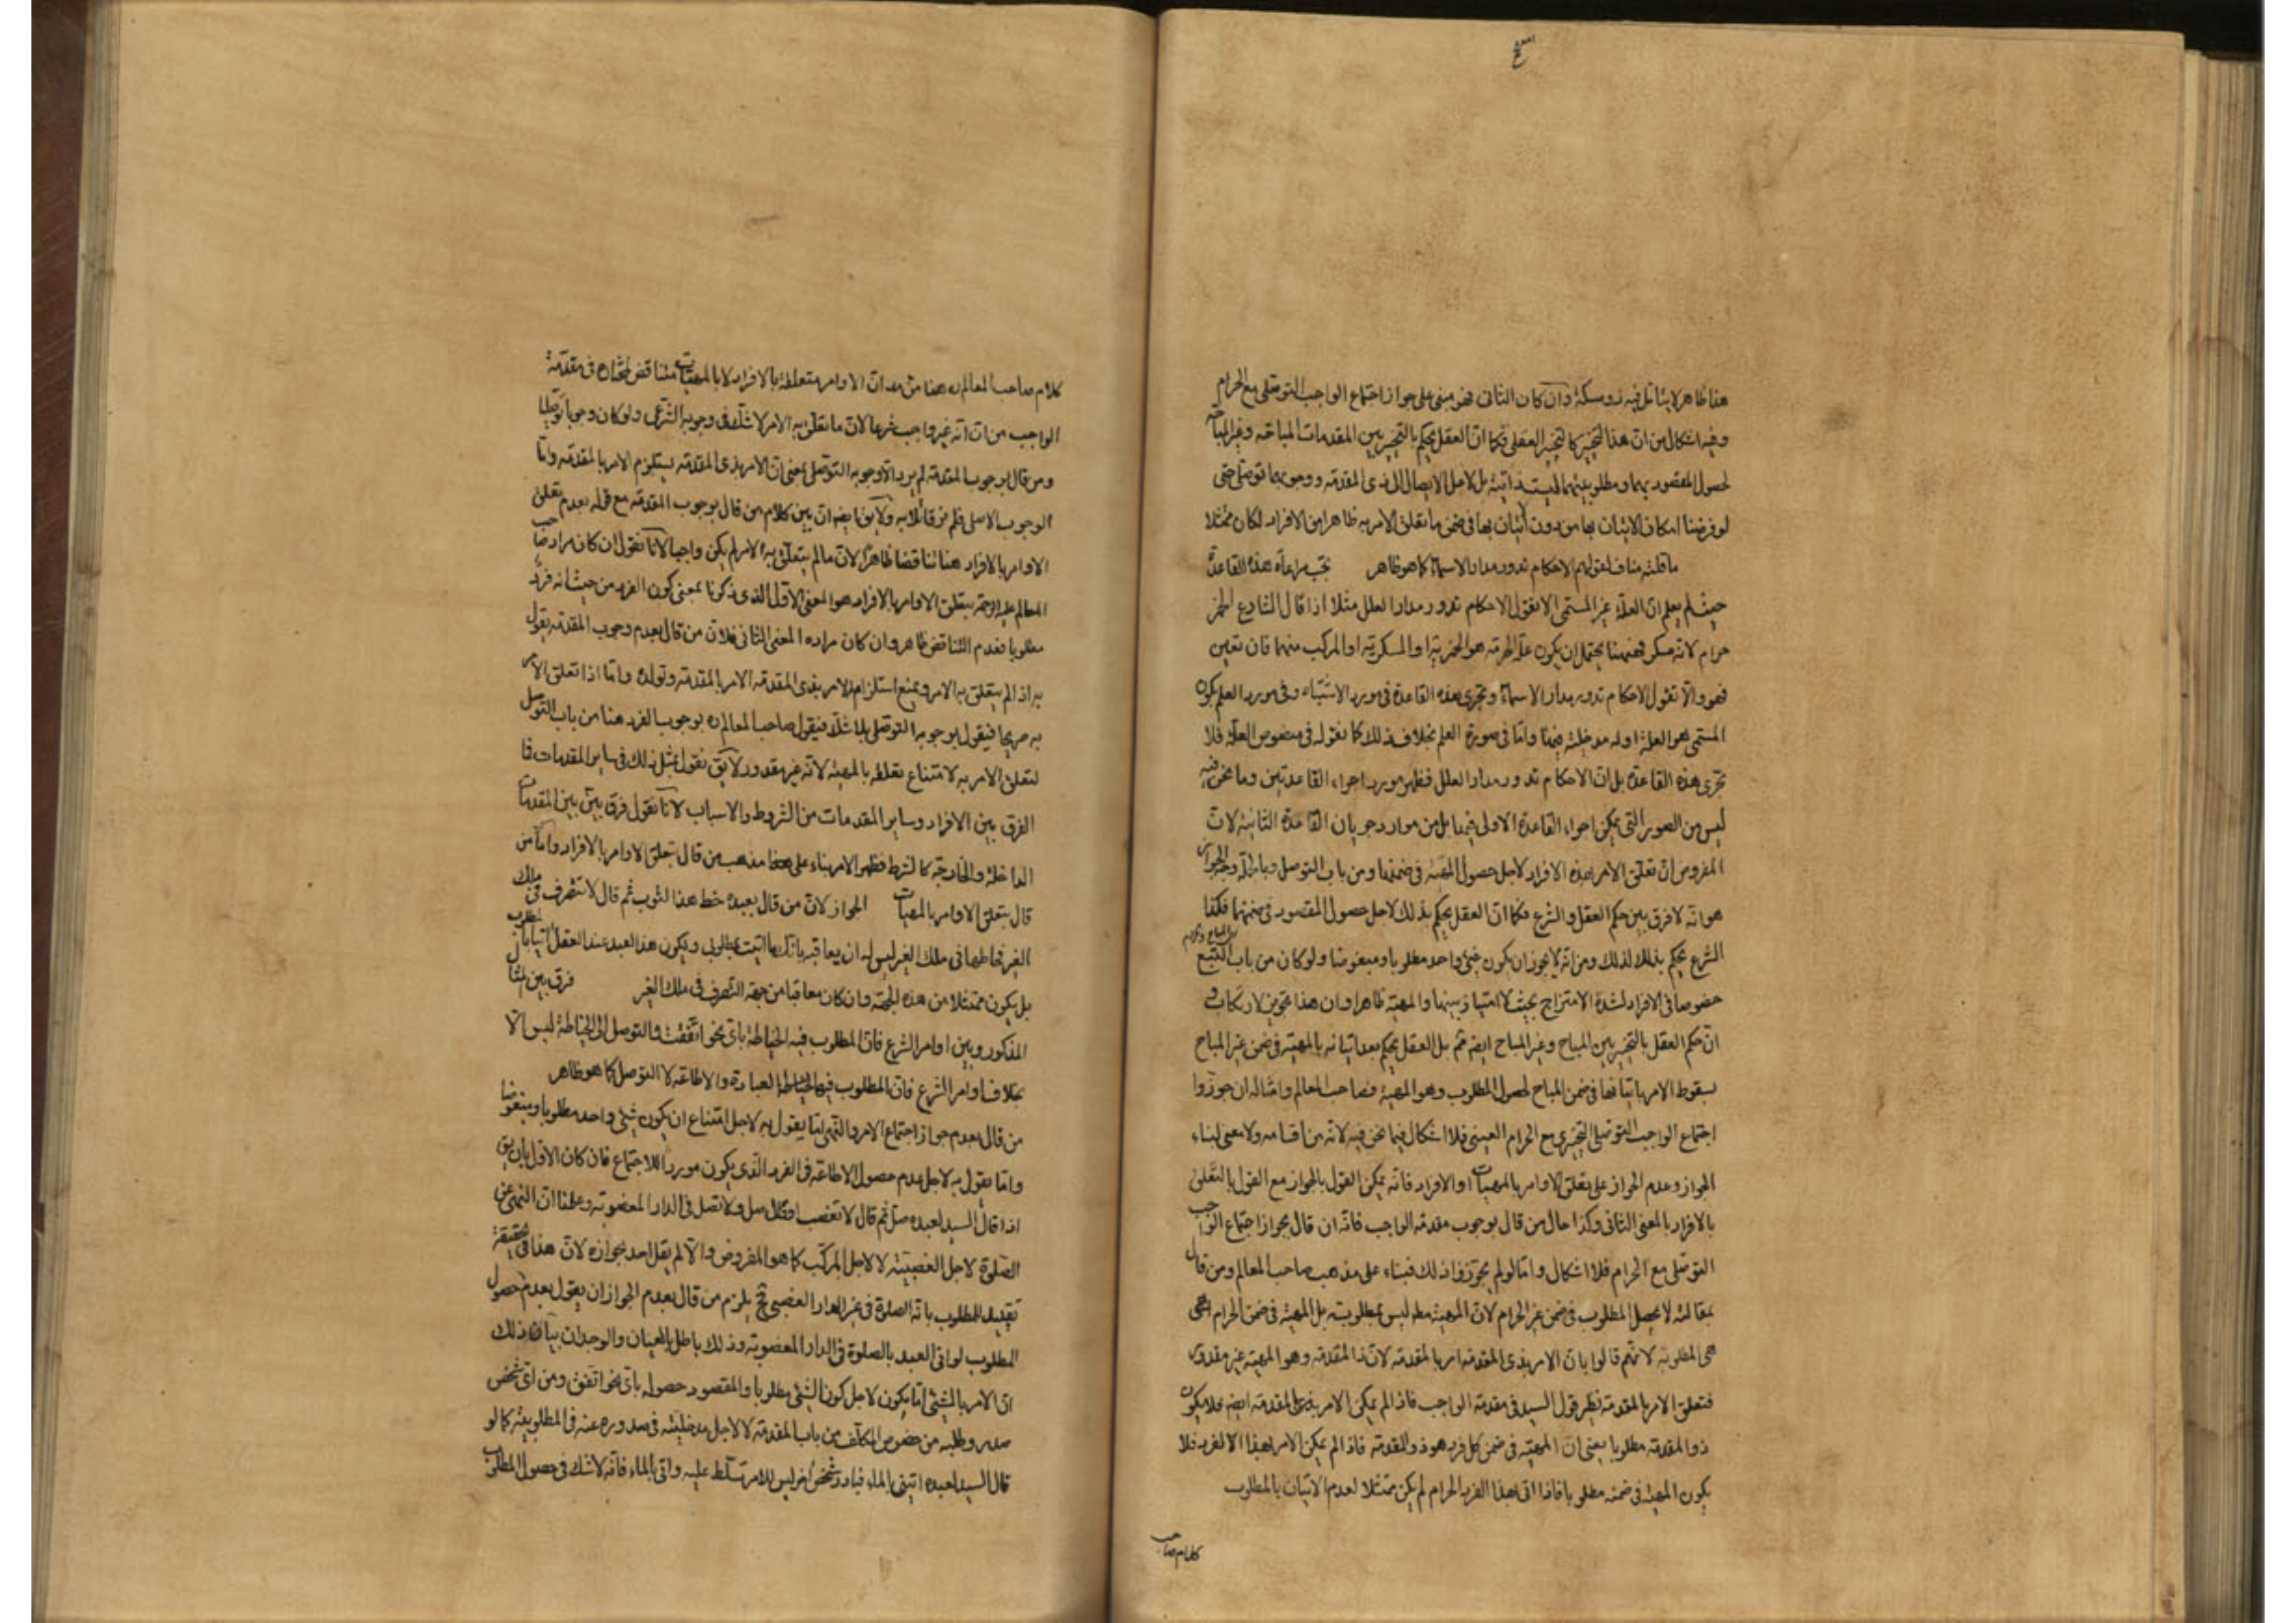 هذا ظاهر لا يتأمل فيه ذو مسكة وان كان الثانى فهو مبنى على جواز اجتماع الواجب التوصلى مع الحرام
وفيه اشكال من ان هذا التخيير كالتخيير العقلى فكما ان العقل يحكم بالتخيير بين المقدمات المباحة وغير المباحة
لحصول المقصود بهما ومطلوبيتهما ليست ذاتية بل لاجل الايصال الى ذى المقدمة ووجوبها توصلى حتى
لو فرضنا امكان الاتيان بها من دون اتيان بها فى ضمن ما تعلق الامر به ظاهرا من الافراد لكان ممتثلا
ما قلته مناف لقولهم الاحكام تدور مدار الاسماء كما هو ظاهر يجب مراعاة هذه القاعدة
حيث لم يعلم ان العلة غير المسمى الا نقول الاحكام تدور مدار العلل مثلا اذا قال الشارع الخمر
حرام لانه مسكر فههنا يحتمل ان يكون علة الحرمة هو الخمرية او المسكرية او المركب منهما فان تعين
فهو والا نقول الاحكام تدور مدار الاسماء وتجرى هذه القاعدة فى مورد الاشتباه وفى مورد العلم بكون
المسمى هو العلة او له مدخلية فيها واما فى صورة العلم بخلاف ذلك كما نقوله فى منصوص العلة فلا
تجرى هذه القاعدة بل ان الاحكام تدور مدار العلل فظهر مورد اجراء القاعدتين وما نحن فيه
ليس من الصور التى يمكن اجراء القاعدة الاولى فيها بل من موارد جريان القاعدة الثانية لان
المفروض ان تعلق الامر بهذه الافراد لاجل حصول المهية فى ضمنها ومن باب التوصل وبالجملة وجه الجواز
هو انه لا فرق بين حكم العقل والشرع فكما ان العقل يحكم بذلك لاجل حصول المقصود فى ضمنهما فكذا
الشرع يحكم بذلك لذلك ومن انه لا يجوز ان يكون شئ واحد مطلوبا ومبغوضا ولو كان من باب التبع
خصوصا فى الافراد لشدة الامتزاج بحيث لا امتياز بينها والمهية ظاهرا وان هذا تجويز لارتكاب
ان حكم العقل بالتخيير بين المباح وغير المباح ايضه ثم بل العقل يحكم بعد اتيانه بالمهية فى ضمن غير المباح
بسقوط الامر باتيانها فى ضمن المباح لحصول المطلوب وهو المهية فصاحب المعالم وامثاله ان جوزوا
اجتماع الواجب التوصلى التخييرى مع الحرام العينى فلا اشكال فيما نحن فيه لانه من اقسامه ولا معنى لبناء
الجواز وعدم الجواز على تعلق الاوامر بالمهيات او الافراد فانه يمكن القول بالجواز مع القول بالتعلق
بالافراد بالمعنى الثانى وكذا حال من قال بوجوب مقدمة الواجب فانه ان قال بجواز اجتماع الواجب
التوصلى مع الحرام فلا اشكال واما لو لم يجوزوا ذلك فبناء على مذهب صاحب المعالم ومن قال
بمقالته لا يحصل المطلوب فى ضمن غير الحرام لان المهية مطه ليس بمطلوبته بل المهية فى ضمن الحرام
هى المطلوبة لانهم قالوا بان الامر بذى المقدمة امر بالمقدمة لان ذا المقدمة وهو المهية غير مقدور
فتعلق الامر بالمقدمة نظير قول السيد فى مقدمة الواجب فاذا لم يمكن الامر بالمقدمة ايضه فلا يكون
ذو المقدمة مطلوبا يعنى ان المهية فى ضمن كل فرد هو ذو المقدمة فاذا لم يمكن الامر بهذا الفرد فلا
يكون المهية فى ضمنه مطلوبا فاذا اتى بهذا الفرد الحرام لم يكن ممتثلا لعدم الاتيان بالمطلوب
كلام صاحب
كلام صاحب المعالم ره هنا من ان الاوامر متعلقة بالافراد لا بالمهيات مناقض لمختاره فى مقدمة
الواجب من انه غير واجب شرعا لان ما تعلق به الامر لا شك فى وجوبه الشرعى ولو كان وجوبا توصليا
ومن قال بوجوب المقدمة لم يرد الا وجوبه التوصلى بمعنى ان الامر بذى المقدمة يستلزم الامر بالمقدمة واما
الوجوب الاصلى فلم نر قائلا به ولا يق ايضه ان بين كلام من قال بوجوب المقدمة مع قوله بعدم تعلق
الاوامر بالافراد هنا تناقضا ظاهرا لان ما لم يتعلق به الامر لم يكن واجبا لانا نقول ان كان مراد صاحب
المعالم عليه الرحمة بتعلق الاوامر بالافراد هو المعنى الاول الذى ذكرنا بمعنى كون الفرد من حيث انه فرد
مطلوبا فعدم التناقض ظاهر وان كان مراده المعنى الثانى فلان من قال بعدم وجوب المقدمة يقول
به اذا لم يتعلق به الامر ويمنع استلزام الامر بذى المقدمة الامر بالمقدمة وتولده واما اذا تعلق الامر
به صريحا فيقول بوجوبه التوصلى بلا شك فيقول صاحب المعالم ره بوجوب الفرد هنا من باب التوصل
لتعلق الامر به لامتناع تعلقه بالمهية لانه غير مقدور لا يق نقول بمثل ذلك فى ساير المقدمات فما
الفرق بين الافراد وساير المقدمات من الشروط والاسباب لانا نقول فرق بين بين المقدمات
الداخلة والخارجة كالشرط فظهر الامر بناء على مذهب من قال بتعلق الاوامر بالافراد واما من
قال بتعلق الاوامر بالمهيات الجواز لان من قال بعبده خط هذا الثوب ثم قال لا تتصرف فى ملك
الغير فخاطها فى ملك الغير ليس له ان يعاقبه بانك ما اتيت بمطلوبى ويكون هذا العبد عند العقل اتيا بالمطلوب
بل يكون ممتثلا من هذه الجهة وان كان معاقبا من جهة التصرف فى ملك الغير فرق بين المثال
المذكور وبين اوامر الشرع فان المطلوب فيه الخياطة باى نحو اتفقت والتوصل الى الخياطة ليس الا
بخلاف اوامر الشرع فان المطلوب فيها العبادة والاطاعة لا التوصل كما هو ظاهر
من قال بعدم جواز اجتماع الامر والنهى اما يقول به لاجل امتناع ان يكون شئ واحد مطلوبا ومبغوضا
واما يقول به لاجل عدم حصول الاطاعة فى الفرد الذى يكون موردا للاجتماع فان كان الاول بان يق
اذا قال السيد لعبده صل ثم قال لا تغصب او قال صل ولا تصل فى الدار المغصوبة وعلمنا ان النهى عن
الصلوة لاجل الغصبية لا لاجل المركب كما هو المفروض والا لم يقل احد بجوازه لان هذا فى الحقيقة
تقييد للمطلوب بانه الصلوة فى غير الدار الغصبى فح يلزم من قال بعدم الجواز ان يقول بعدم حصول
المطلوب لو اتى العبد بالصلوة فى الدار المغصوبة وذلك باطل بالعيان والوجدان بيان ذلك
ان الامر بالشئ اما يكون لاجل كون الشئ مطلوبا والمقصود حصوله باى نحو اتفق ومن اى شخص
صدر وطلبه من خصوص المكلف من باب المقدمة لا لاجل مدخليته فى صدوره عنه فى المطلوبية كما لو
قال السيد لعبده اتينى بالماء فبادر شخص اخر ليس للامر تسلط عليه واتى بالماء فانه لا شك فى حصول المطلوب